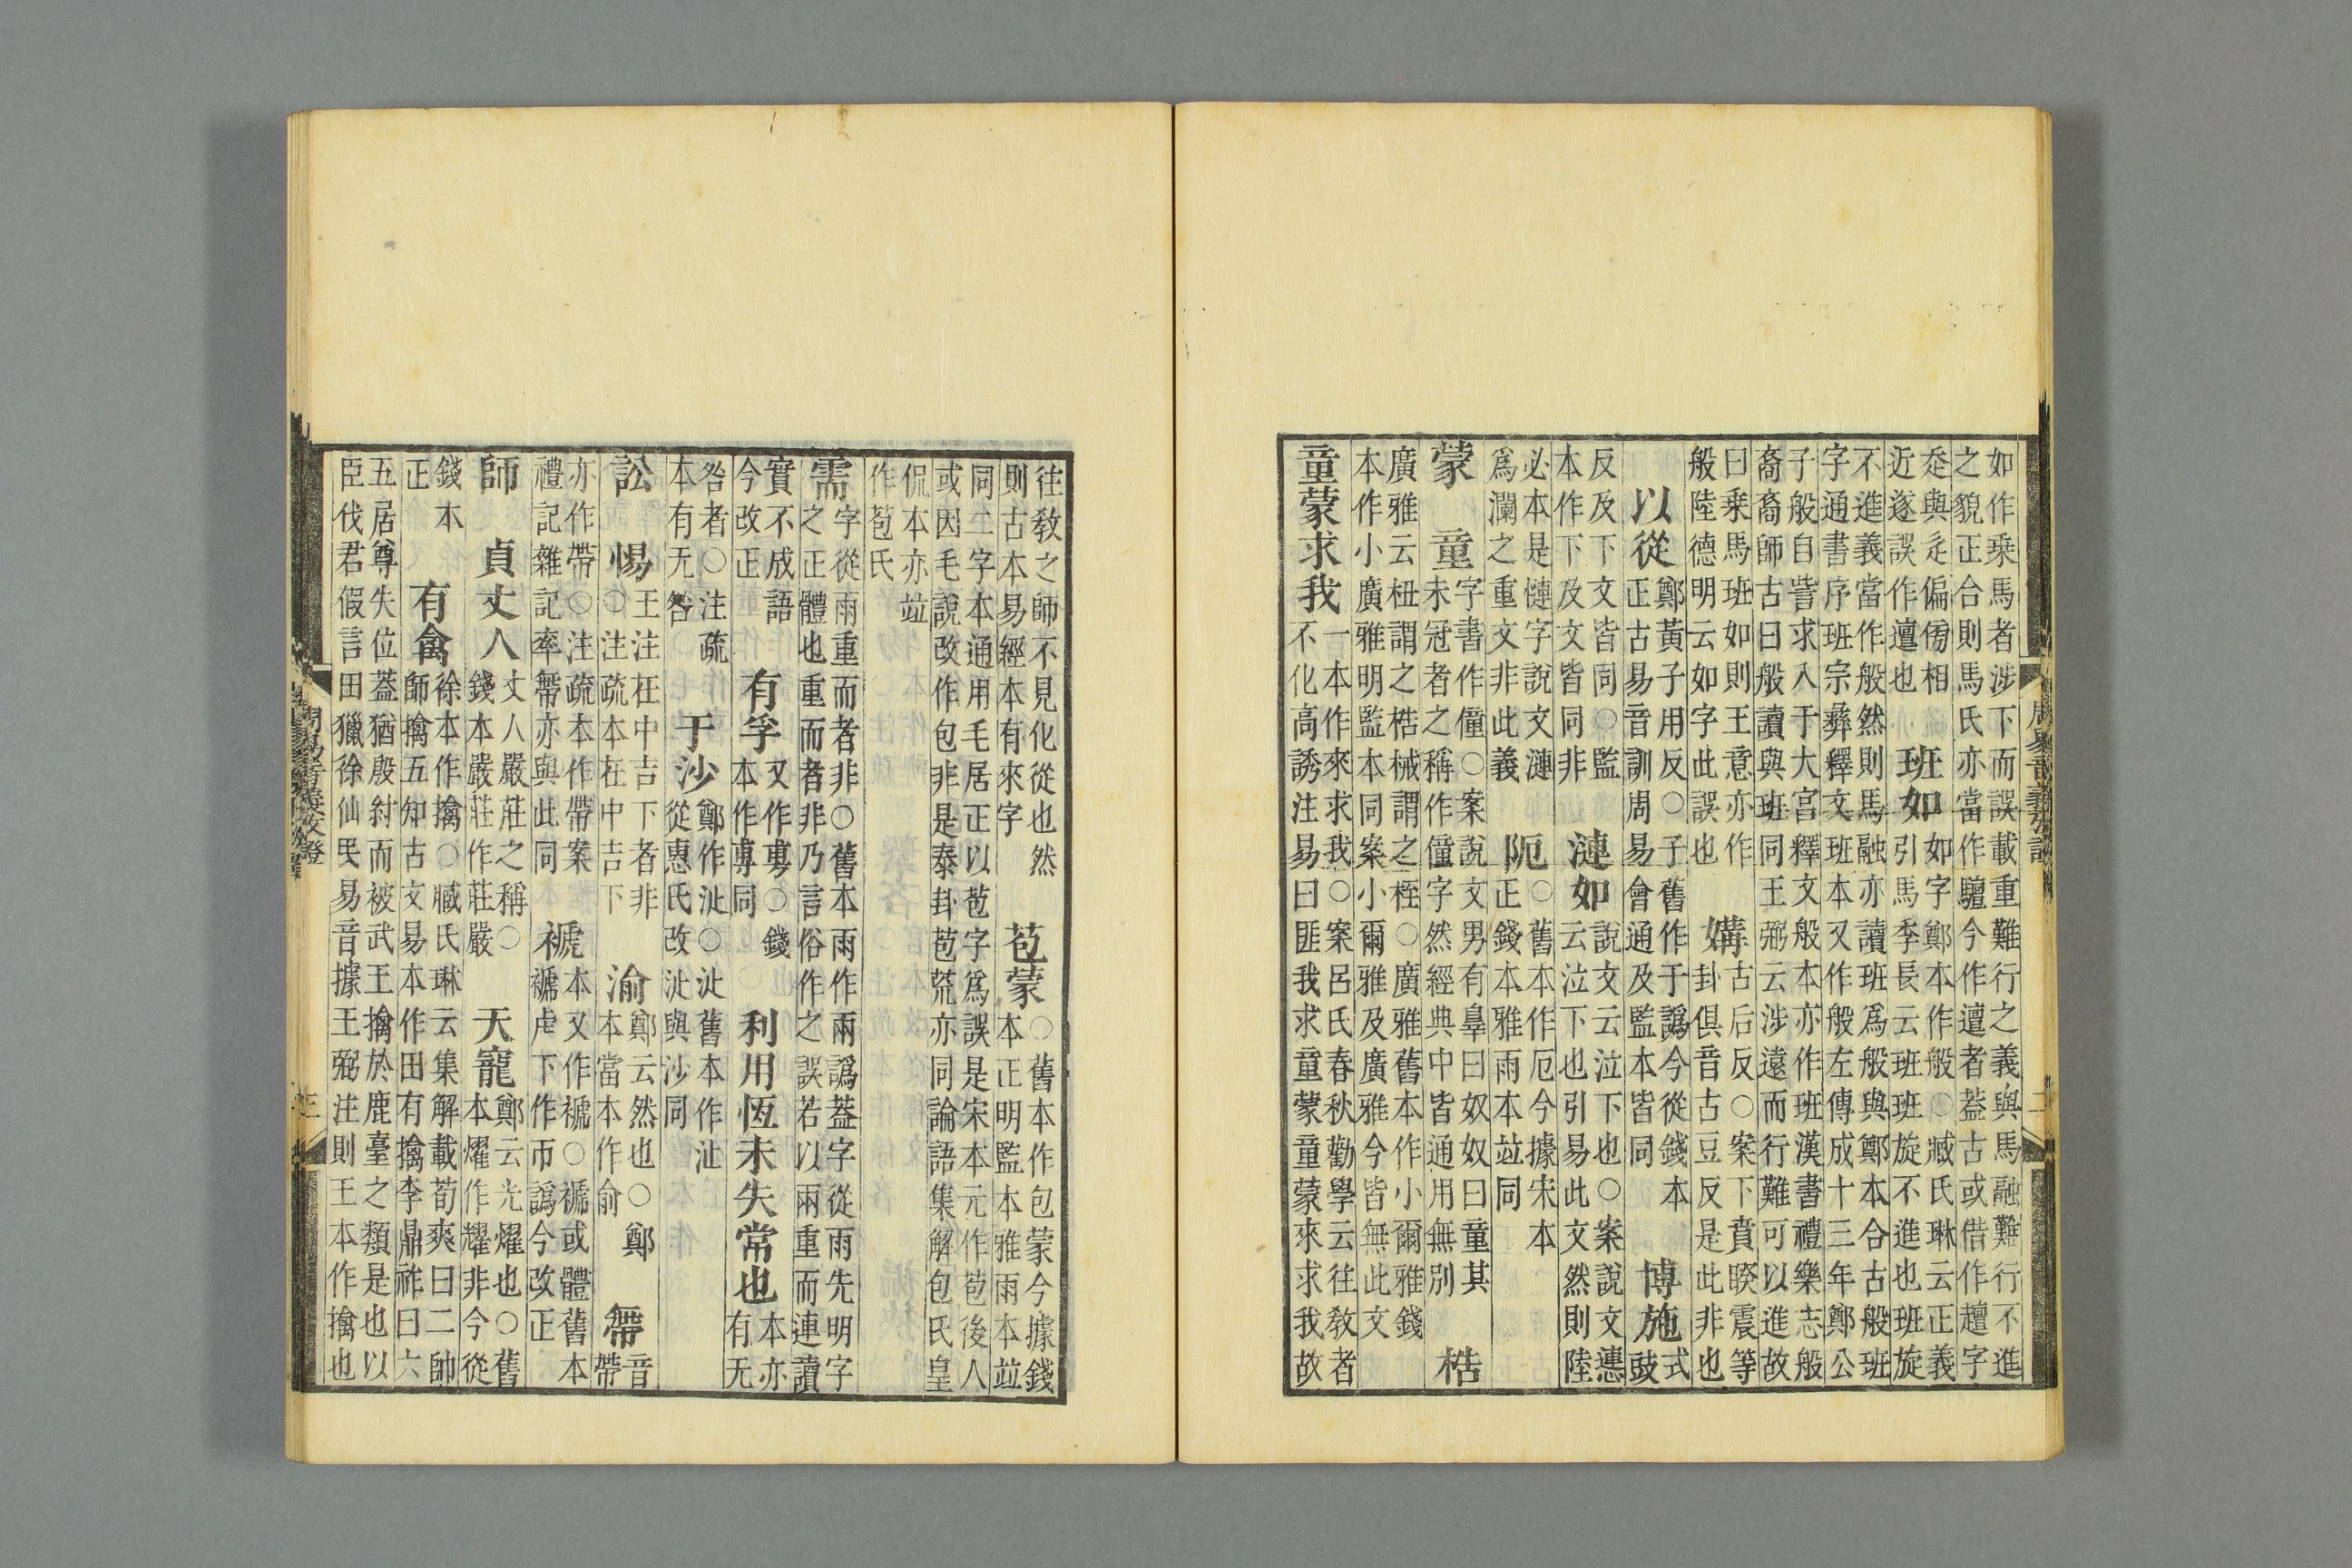 如作乗馬者涉下而誤載重難行之義與馬融難行不進
之貌正合則馬氏亦當作驙今作邅者蓋古或借作趲字
走與辵偏傍相
近遂誤作邅也
班如
如字鄭本作般○臧氏琳云正義
引馬季長云班班旋不進也班旋
不進義當作般然則馬融亦讀班爲般與鄭本合古般班
字通書序班宗彝釋文班本又作般左傳成十三年鄭公
子般自訾求入于大宮釋文般本亦作班漢書禮樂志般
裔裔師古曰般讀與班同王弼云涉遠而行難可以進故
曰乗馬班如則王意亦作
般陸德明云如字此誤也
媾
古后反○案下賁睽震等
卦俱音古豆反是此非也
以從
鄭黃子用反○子舊作于譌今從錢本
正古易音訓周易會通及監本皆同
博施
式
豉
反及下文皆同○監
本作下及文皆同非
漣如
說文云泣下也○案說文㦁
云泣下也引易此文然則陸
必本是㦁字說文漣
爲瀾之重文非此義
阨
○舊本作厄今據宋本
正錢本雅雨本竝同
蒙
童
字書作僮○案說文男有辠曰奴奴曰童其
未冠者之稱作僮字然經典中皆通用無別
梏
廣雅云杻謂之梏械謂之桎○廣雅舊本作小爾雅錢
本作小廣雅明監本同案小爾雅及廣雅今皆無此文
童蒙求我
一本作來求我○案呂氏春秋勸學云往敎者
不化高誘注易曰匪我求童蒙童蒙來求我故
往敎之師不見化從也然
則古本易經本有來字
苞蒙
○舊本作包蒙今據錢
本正明監本雅雨本竝
同二字本通用毛居正以苞字爲誤是宋本元作苞後人
或因毛說改作包非是泰卦苞荒亦同論語集解包氏皇
侃本亦竝
作苞氏
需
字從雨重而者非○舊本雨作兩譌蓋字從雨先明字
之正體也重而者非乃言俗作之誤若以兩重而連讀
實不成語
今改正
有孚
又作旉○錢
本作專同
利用恆未失常也
本亦
有无
咎者○注疏
本有无咎
于沙
鄭作沚○沚舊本作沚
從惠氏改沚與沙同
訟
惕
王注在中吉下者非
○注疏本在中吉下
渝
鄭云然也○鄭
本當本作俞
鞶
音
帶
亦作帶○注疏本作帶案
禮記雜記率鞶亦與此同
褫
本又作褫○褫或體舊本
褫虍下作帀譌今改正
師
貞丈人
丈人嚴莊之稱○
錢本嚴莊作莊嚴
天寵
鄭云光燿也○舊
本燿作耀非今從
錢本
正
有禽
徐本作擒○臧氏琳云集解載荀爽曰二帥
師擒五知古文易本作田有擒李鼎祚曰六
五居尊失位蓋猶殷紂而被武王擒於鹿臺之類是也以
臣伐君假言田獵徐仙民易音據王弼注則王本作擒也
周易音義攷證
二
三